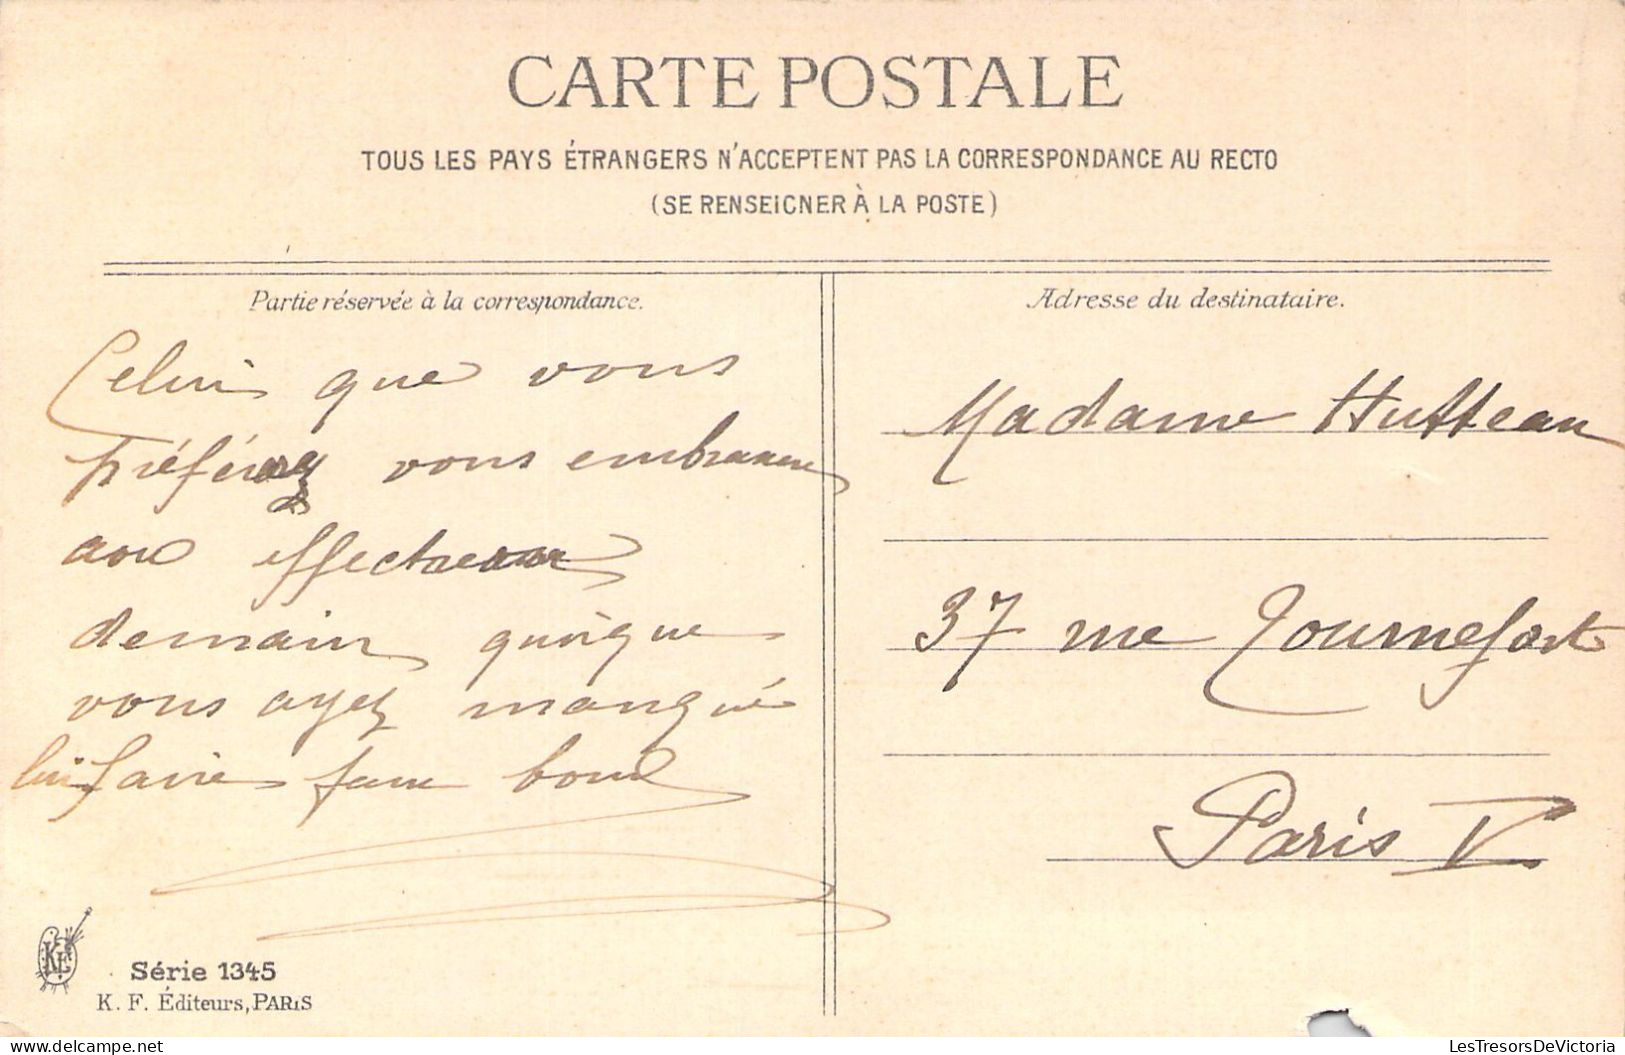 CARTE POSTALE
TOUS LES PAYS ÉTRANGERS N'ACCEPTENT PAS LA CORRESPONDANCE AU RECTO
(SE RENSEIGNER À LA POSTE)
Partie réservée à la correspondance.
Celui que vous
préférez vous embrassera
demain quoique
vous ayez manqué
lui faire faux bond
Adresse du destinataire.
Madame Hutteau
37 rue Tournefort
Paris V
KF
Série 1345
K. F. Éditeurs, PARIS
LesTresorsDeVictoria
delcampe.net
LesTresorsDeVictoria